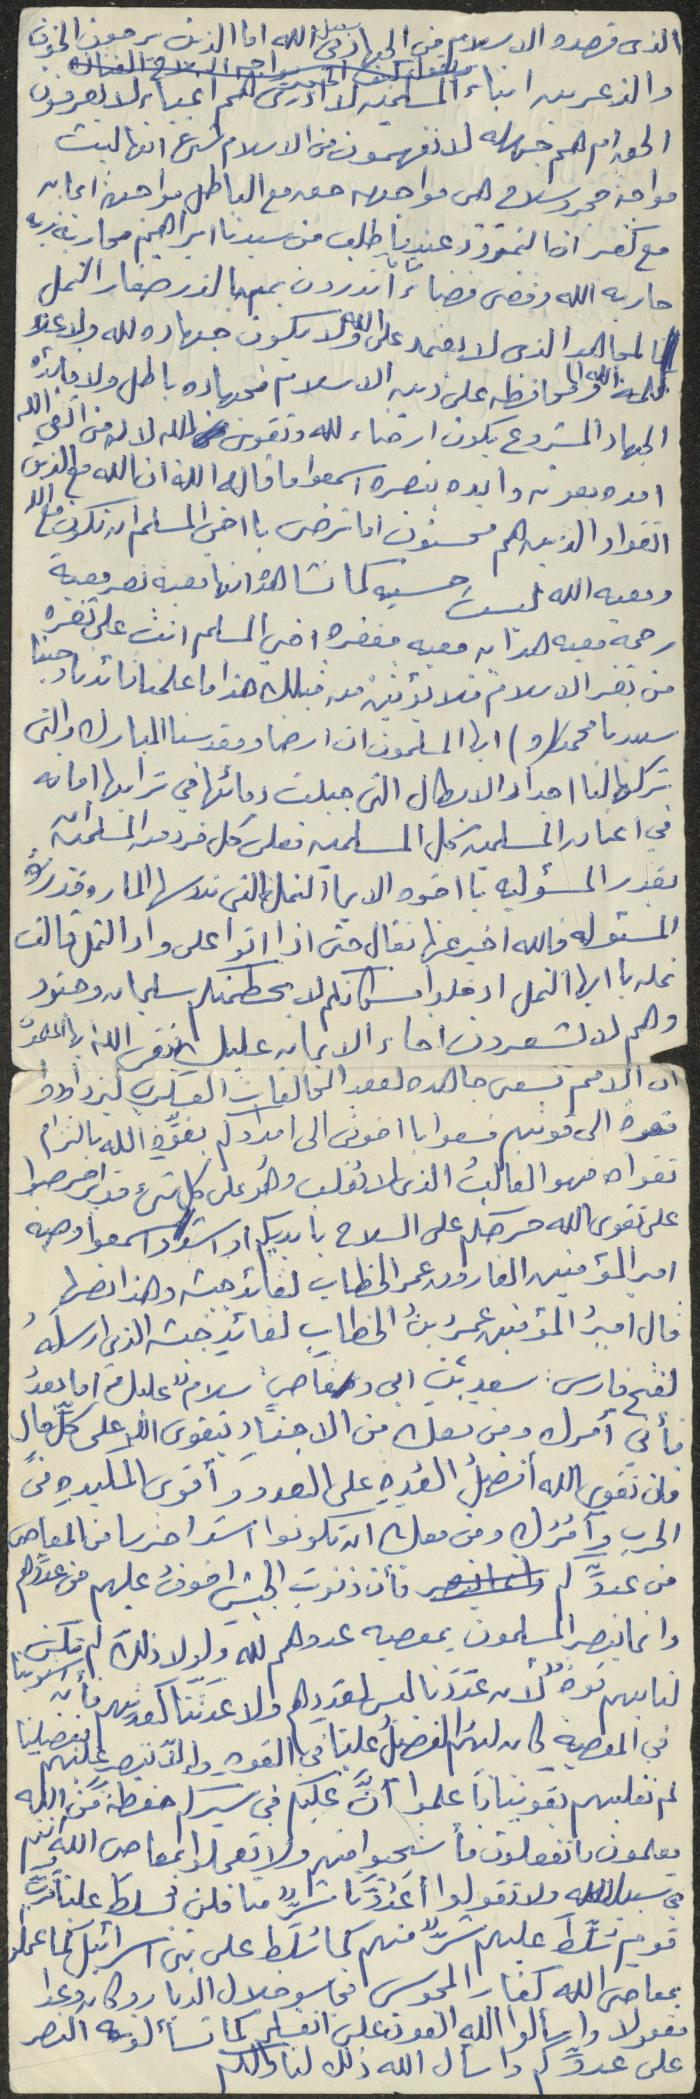 الذى قصده الاسلام من الجهاد في سبيل الله اما الذين يرهبون الخوف
والذعر بين ابناء المسلمين لا ادرى أهم اغبياء لا يعرفون
الحق ام هم جهله لا يفهمون من الاسلام شئ انها ليست
مواجهة مجرد سلاح هى مواجهه حق مع الباطل مواجهة ايمان
مع كفر ان النمرود عندما طلب من سيدنا ابراهيم محاربة ربه
حاربه الله وقضى قضاءً أتدرون بم بالذر صغار النمل
المجاهد الذى لا يعتمد على الله ولا يكون جهاده لله ولاعلاء
كلمة الله والمحافظه على دين الاسلام فجهاده باطل ولا فائدة
الجهاد المشروع يكون ارضاء لله وتقوى الله لانه من اتقى الله
امده بعونه وايده بنصره اسمعوا ما قاله الله ان الله مع الذين
اتقوا والذين هم محسنون اما ترضى يا اخي المسلم ان تكون مع الله
ومعيه الله ليست حسيه كما تشاهد انها معية نصر معية
رحمه معيه هدايه معيه مغفره اخي المسلم انت على ثغره
من ثغر الاسلام فلا يؤتين من قبلك هذا ما علمنا قائدنا وحبيبنا
سيدنا محمد (ص) ايها المسلمون ان ارضنا ومقدسنا المبارك والتى
تركها لنا اجدادنا الابطال التى جبلت دمائها في ترابها امانه
في اعناق المسلمين كل المسلمين فعلى كل فرد من المسلمين ان
يقدر المسؤليه يا اخوه الايمان النملة التى ندوسها المار وقدرت
المسئوله فالله اخبر عنها فقال حتى اذا اتوا على واد النمل قالت
نمله يا ايها النمل ادخلوا مساكنكم لا يحطمنكم سليمان وجنوده
وهم لا يشعرون احباء الايمان عليكم بتقوى الله ايها المسلمون
ان الامم تسعى جاهده لعقد المحالفات العسكرى ليزدادوا
قوة الى قوتهم فسعوا يا اخوتى الى امدادكم بقوة الله بالتزام
تقواه فهو الغالبُ الذى لا يُغلب وهُو على كل شئ قدير احرصوا
على تقوى الله حرصكم على السلاح بايديكم او اشد اسمعوا وصية
امير المؤمنين الفاروق عمر الخطاب لقائد جيشه وهذا نصها
قال اميرُ المؤمنين عمرُ بنُ الخطاب لقائد جيشه الذى ارسلهُ
لفتح فارس: سعد بن ابى وقاص: سلامٌ عليك اما بعدُ
فأني آمرك ومن معك من الاجناد بتقوى الله على كلِّ حال
فان تقوى الله أفضلُ العُدةِ على العدو و أقوى المكيدة فى
الحرب وآمُرُك ومن معك ان تكونوا اشد احتراسا من المعاصى
من عدوِّكم فأن ذنوب الجيش اخوفُ عليهم من عدوِّهم
وانما ينصر المسلمون بمعصيه عدوهم لله ولولا ذلك لم تكن
لنا بهم قوةٌ لأن عَدَدَنا ليس كعددهم ولا عدتنا كعدتهم فأن استوينا
في المعصية كان لهُم الفضلُ علينا في القوه وإلا ننصر عليهم بفضلنا
لم نغلبهم بقوتنا واعلموا أنَّ عليكم في سيركم حفظة من الله
يعلمون ما تفعلون فأستحيوا منهم ولا تعملوا بمعاصى الله وأنتم
في سبيل الله ولا تقولوا أعدُوَّنا شرٌّ منا فلن يُسلط علينا فربَّ
قومٍ سُلِّط عليهم شرٌّ منهم كما سُلط على بنى اسرائيل لما عملوا
بمعاصى الله كفار المجوس فجاسو خلال الديار وكان وعدا
مفعولا واسألوا الله العون على انفسكم كما تسألونه النصر
على عدوِّكم واسأل الله ذلك لنا ولكم